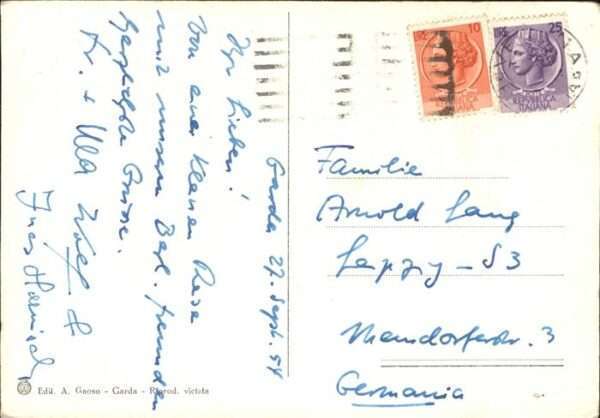 Garda 27. Sept. 54
Ihr Lieben!
Von einer kleinen Reise
mit unseren Berl. Freunden
herzlichste Grüsse.
Fr. + Ulla Wolf &
10
25
REPUBBLICA
ITALIANA
REPUBBLICA
ITALIANA
Familie
Arnold Lang
Leipzig – S3
3
Germania
Edit. A. Gaoso - Garda - Riprod. vietata